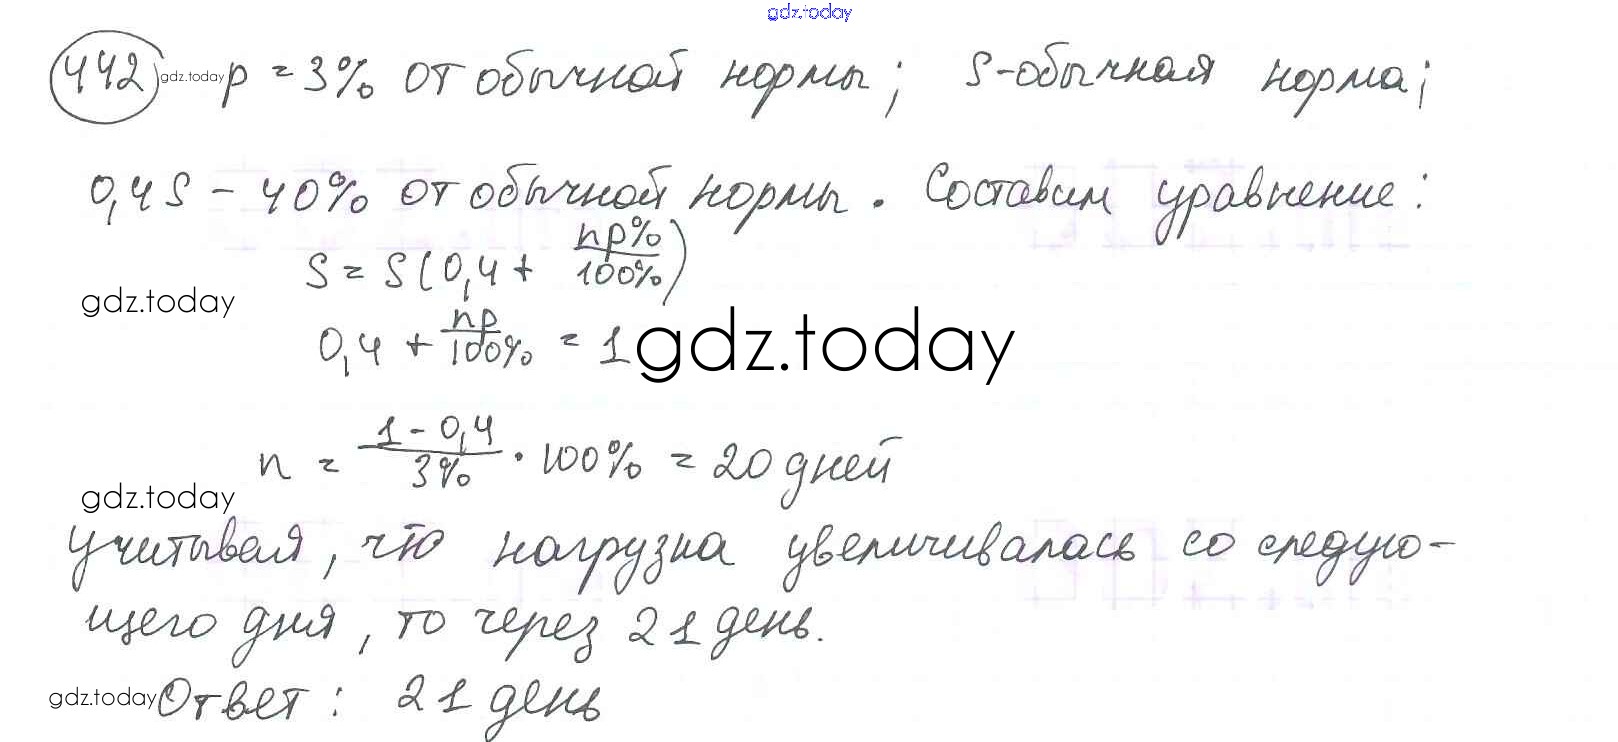 gdz.today
442 gdz.today p = 3% от обычной нормы; S-обычная норма;
0,4S - 40% от обычной нормы. Составим уравнение:
S = S(0,4 + np%/100%)
gdz.today
0,4 + np/100% = 1 gdz.today
n = (1 - 0,4)/3% · 100% = 20 дней
gdz.today
Учитывая, что нагрузка увеличивалась со следую-
щего дня, то через 21 день.
gdz.today Ответ: 21 день